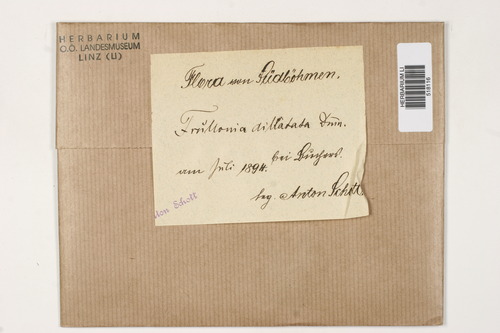 HERBARIUM
O.Ö. LANDESMUSEUM
LINZ (LI)
HERBARIUM LI
518116
Flora von Südböhmen.
Frullania dillatata Dum.
am Juli 1894. bei Buchers.
leg. Anton Schott
Anton Schott